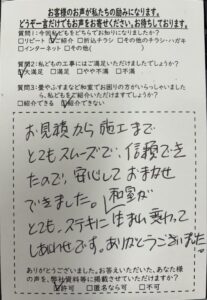 お客様のお声が私たちの励みになります。
どうぞ一言だけでもお声を寄せください。お待ちしております。
質問1:今回私どもをどちらでお知りになりましたか?
□リピート ☑ご紹介 □折込チラシ □その他のチラシ・ハガキ
□インターネット □その他(
質問2:私どもの工事にはご満足いただけましたでしょうか?
☑大満足 □満足 □やや不満 □不満
質問3:畳やふすまなど和室でお困りの方がいらっしゃいましたら、
私どもをご紹介いただけますでしょうか?
□紹介できる ☑紹介できない
お見積から施工まで
とてもスムーズで、信頼でき
たので、安心しておまかせ
できました。和室が
とても、ステキに生まれ変わって
しあわせです。ありがとうございました。
ありがとうございました。お答えいただいた、あなた様
の声を、弊社資料等に掲載させていただけますか?
☑許可 □匿名なら可 □不可